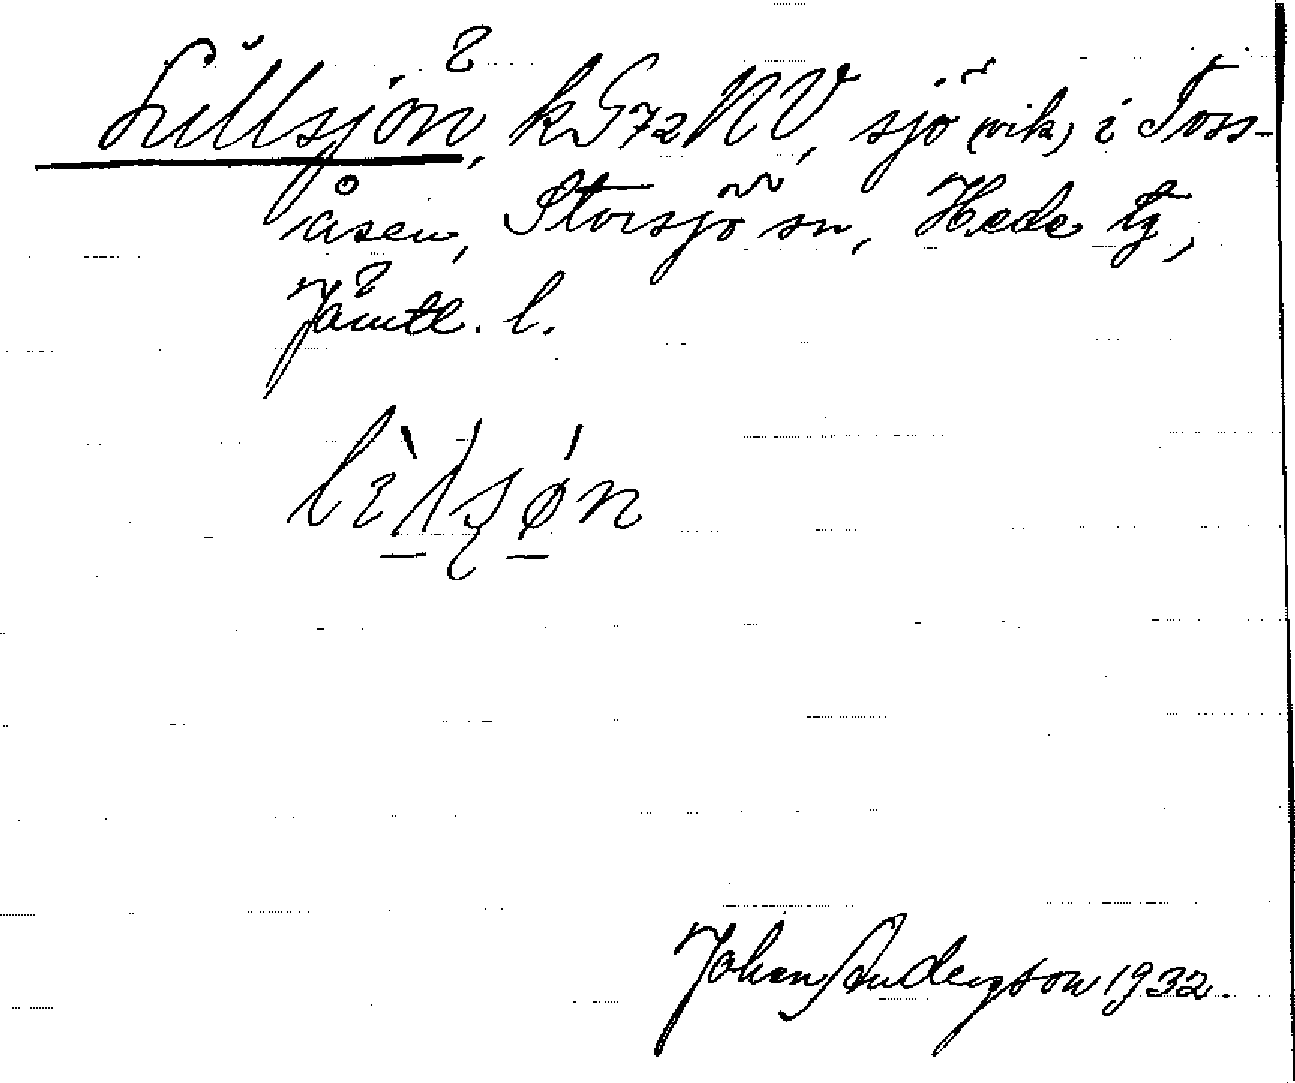 Lillsjön, k G 72 NV, sjö (vik) i Toss-
åsen, Storsjö sn, Hede tg,
Jämtl. l.
Johan Anderson 1932.